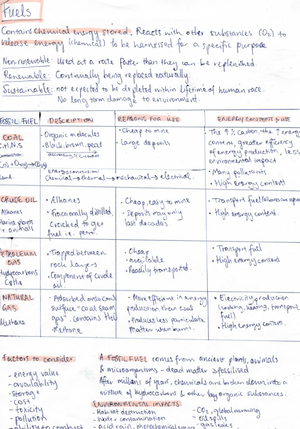 Fuels
Contains chemical energy stored. Reacts with other substances (O₂) to
release energy (chemical) to be harnessed for a specific purpose.
Non renewable: Used at a rate faster than they can be replenished.
Renewable: Continually being replaced naturally.
Sustainable: not expected to be depleted within lifetime of human race.
No long term damage to environment.
FOSSIL FUEL
DESCRIPTION
REASONS FOR USE
COAL
C.H.N.S
- Organic molecules
- Black, brown, peat
- Cheap to mine
- Large deposits
The ↑ % carbon, the ↑ energy
content, greater efficiency
of energy production, less
environmental impact
- Many pollutants
- High energy content
chemical → thermal → mechanical → electrical
CRUDE OIL
Alkanes
Marine plants
+ animals
- Alkanes
- Fractionally distilled,
Cracked to get
fuel i.e. petrol
- Cheap, easy to mine
- Deposits may only
last decades
- High energy content.
PETROLEUM
GAS
Hydrocarbons
- Trapped between
rock layers
- Component of crude
oil
- Cheap
- Available
- Readily transported.
- Transport fuel
- High energy content
NATURAL
GAS
Methane
surface "Coal seam
gas". Contains
methane
- More efficient in energy
production than coal
- Produces less particulate
matter when burnt.
- Electricity production
(cooking, heating, transport
fuel)
- High energy content.
Factors to consider
- energy value
- availability
- storage
- cost
- toxicity
- pollution
A FOSSIL FUEL comes from ancient plants, animals
& microorganisms - dead matter fossilised
After millions of years, chemicals are broken down into a
mixture of hydrocarbons & other organic substances.
ENVIRONMENTAL IMPACTS
- Habitat destruction
- Water contamination
- acid rain, photochemical smog
- CO₂, global warming
- oil spills